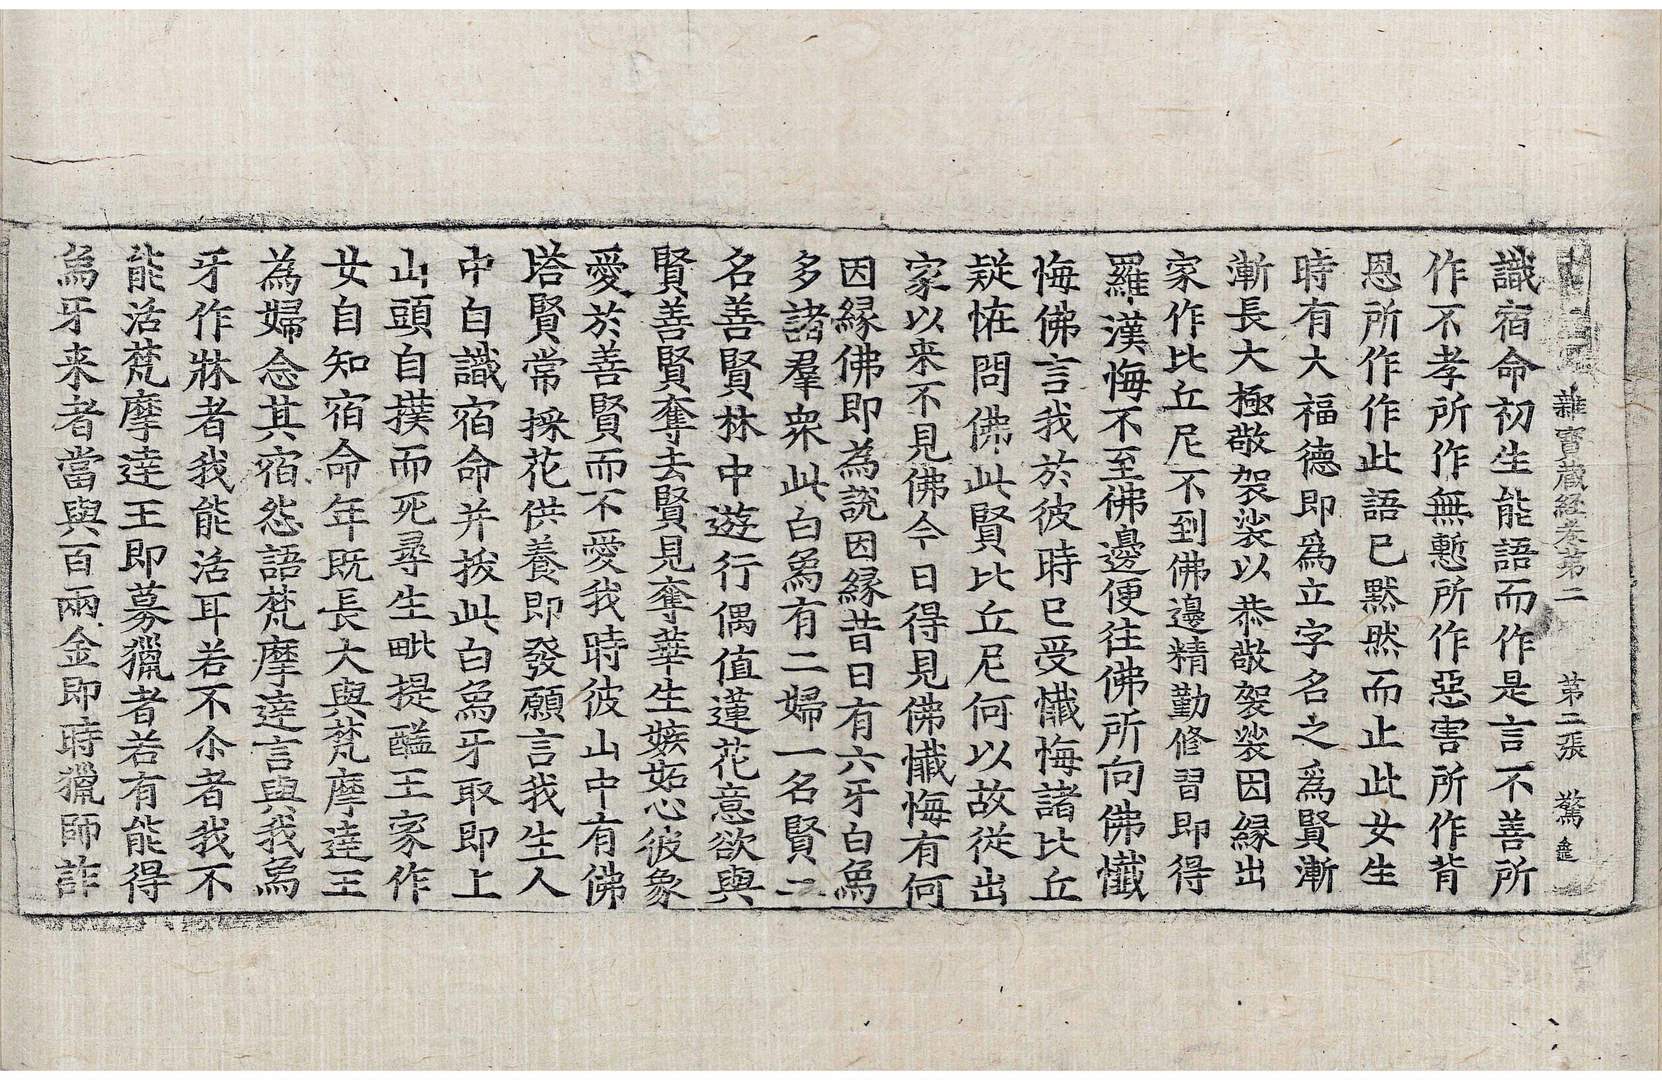 雜寶藏経卷第二 第二張 驚
識宿命初生能語而作是言不善所
作不孝所作無慙所作惡害所作背
恩所作作此語已黙然而止此女生
時有大福德即爲立字名之爲賢漸
漸長大極敬袈裟以恭敬袈裟因縁出
家作比丘尼不到佛邊精勤修習即得
羅漢悔不至佛邊便往佛所向佛懺
悔佛言我於彼時已受懺悔諸比丘
疑恠問佛此賢比丘尼何以故從出
家以来不見佛今日得見佛懺悔有何
因縁佛即為說因縁昔日有六牙白象
多諸羣衆此白象有二婦一名賢二
名善賢林中遊行偶值蓮花意欲與
賢善賢奪去賢見奪華生嫉妬心彼象
愛於善賢而不愛我時彼山中有佛
塔賢常採花供養即發願言我生人
中自識宿命并拔此白象牙取即上
山頭自撲而死尋生毗提醯王家作
女自知宿命年既長大與梵摩達王
為婦念其宿怨語梵摩達言與我象
牙作牀者我能活耳若不尒者我不
能活梵摩達王即募獵者若有能得
象牙来者當與百兩金即時獵師詐